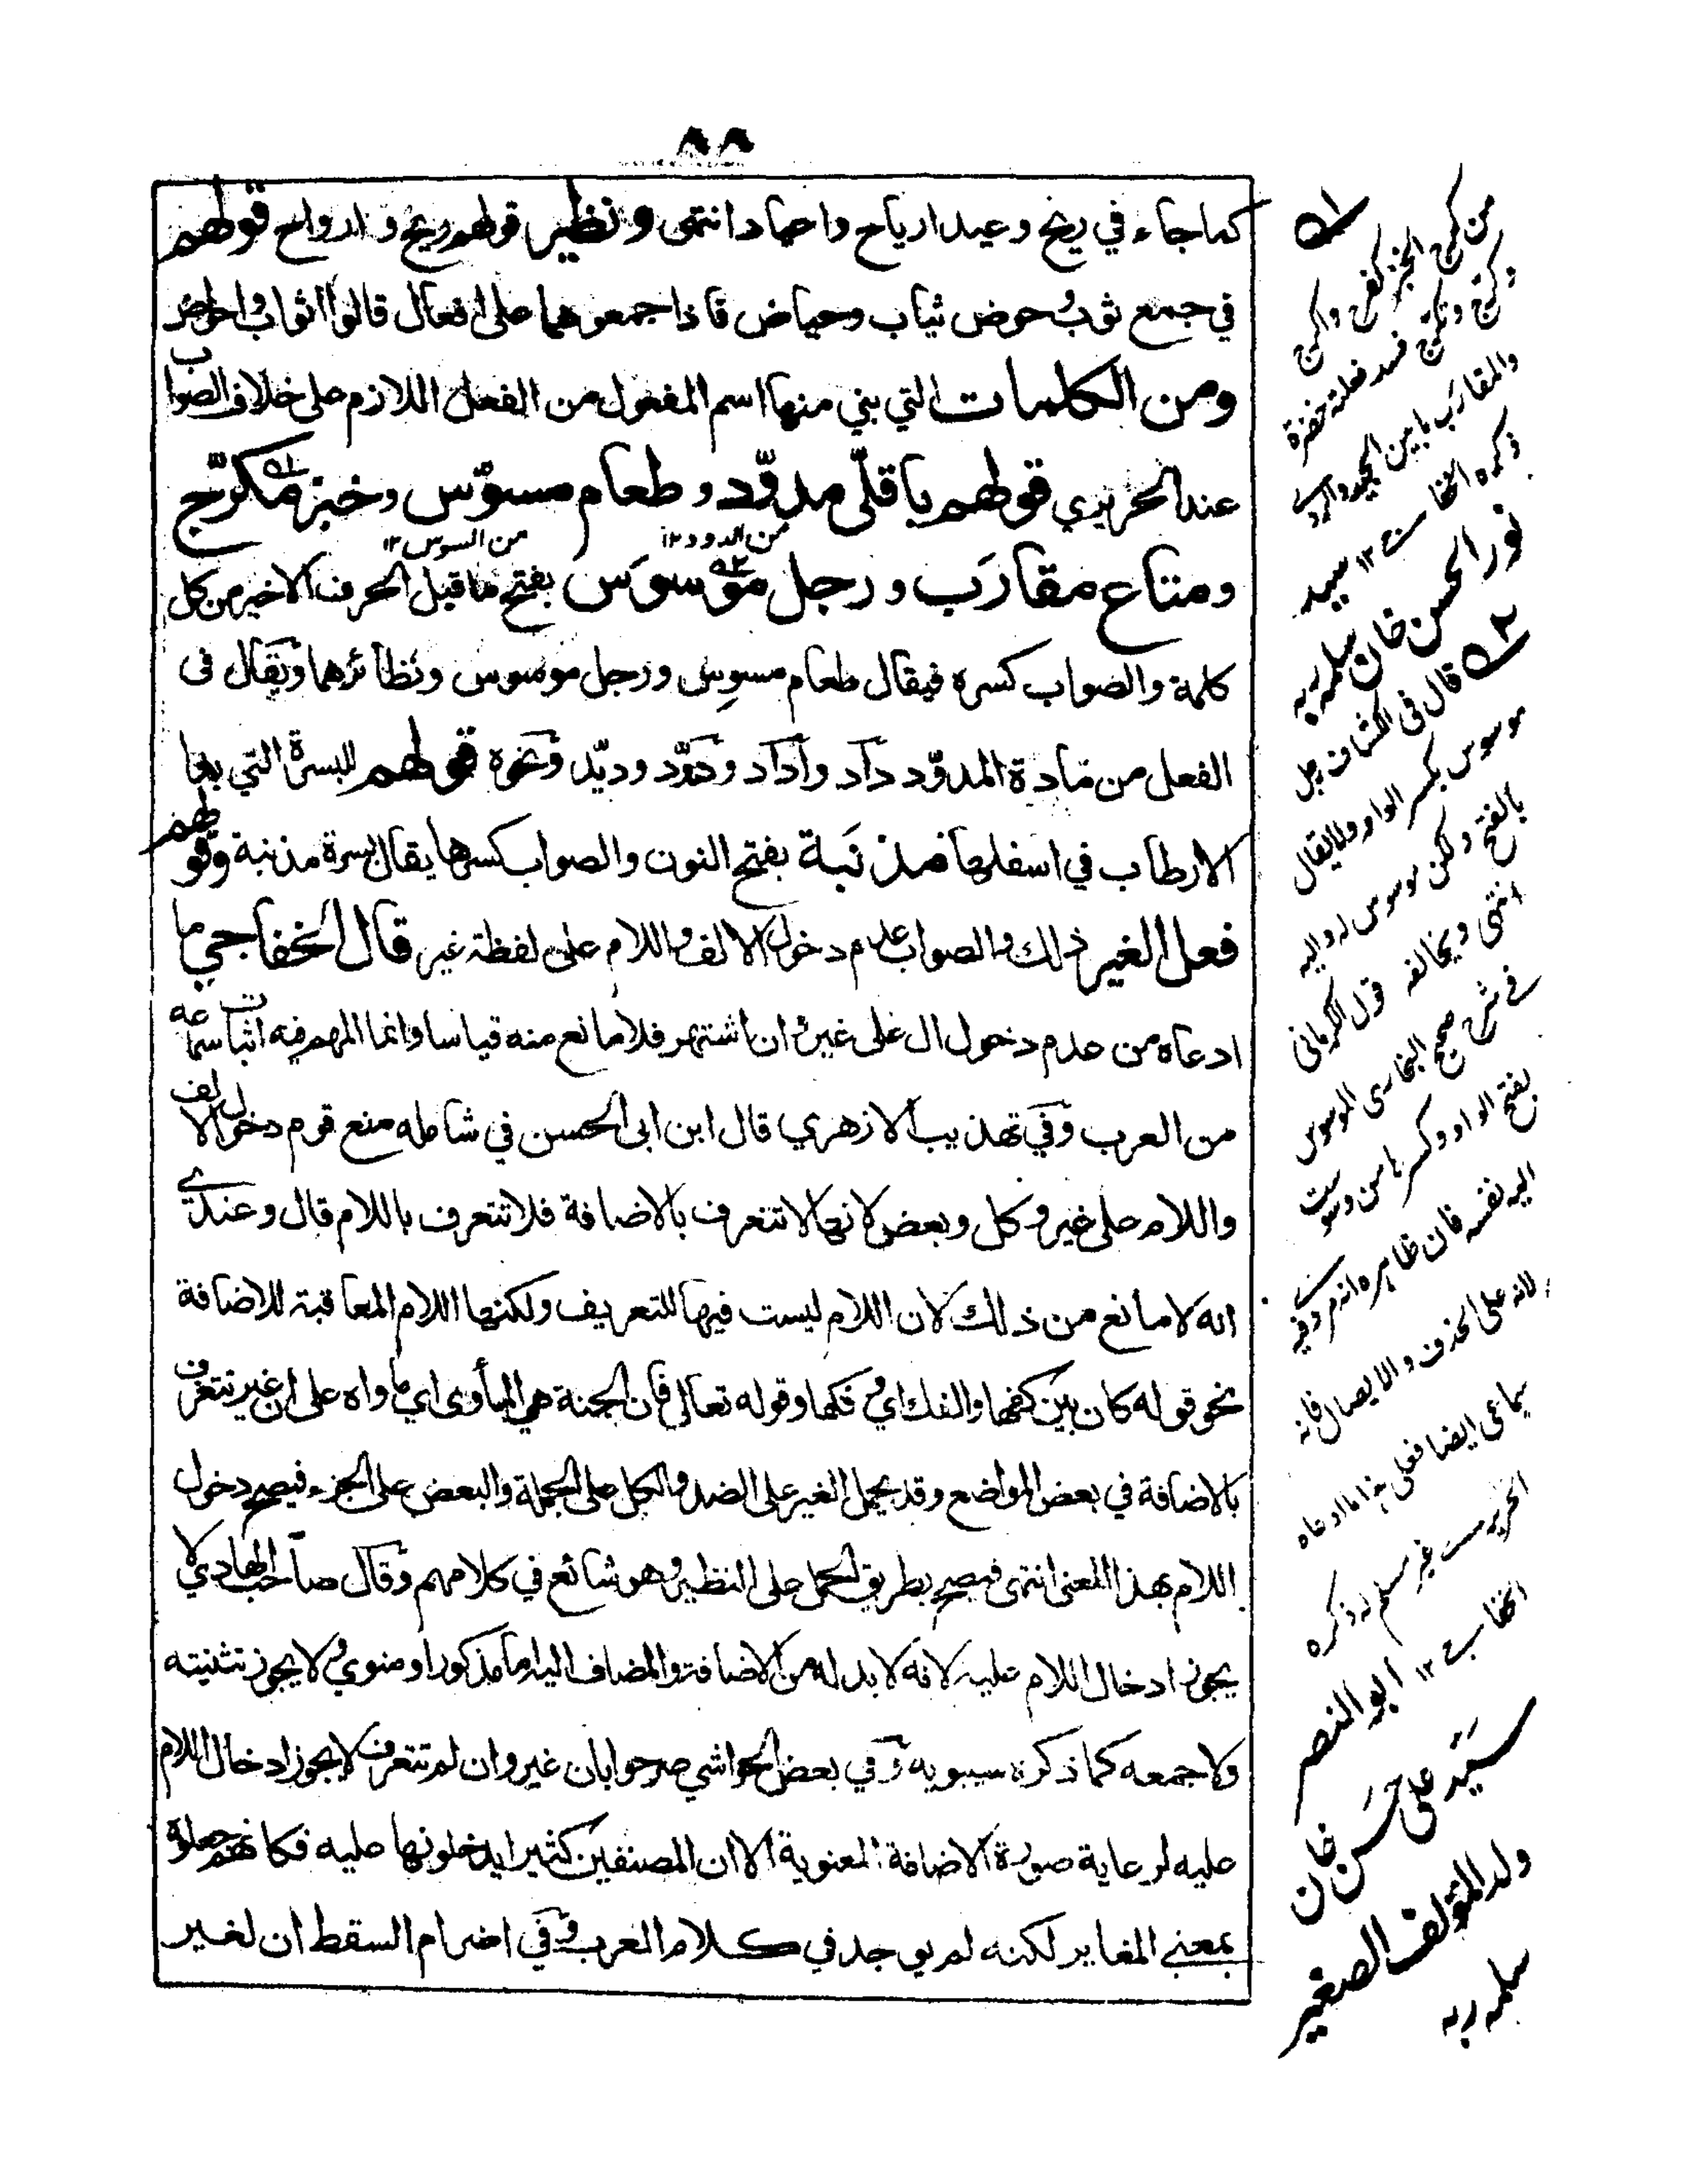 ٨٨
كما جاء في ريح وعيد ارياح واعياد انتهى ونظير قولهم ريح و ارواح قولهم
في جمع ثوب وحوض ثياب وحياض فاذا جمعوهما على افعال قالوا اثواب واحواض
ومن الكلمات التي بني منها اسم المفعول من الفعل اللازم على خلاف الصواب
عند الحريري قولهم باقلّى مدوَّد و طعام مسوَّس وخبز مكرَّج
من الدود ١٢ من السوس ١٢
ومتاع مقارَب و رجل موسوَس بفتح ما قبل الحرف الاخير من كل
كلمة والصواب كسره فيقال طعام مسوِس ورجل موسوس ونظائرهما ويقال فى
الفعل من مادة المدوّد داد وأداد ودوّد وديّد ونحوه قولهم للبسرة التي بدا
الارطاب في اسفلها مذنَبة بفتح النون والصواب كسرها يقال بسرة مذنبة وقولهم
فعل الغير ذلك والصواب عدم دخول الالف واللام على لفظة غير قال الخفاجي ما
ادعاه من عدم دخول ال على غير وان اشتهر فلا مانع منه قياسا وانما المهم فيه اثبات سماعه
من العرب وفي تهذيب الازهري قال ابن ابى الحسن في شامله منع قوم دخول الالف
واللام على غير وكل وبعض لانها لا تتعرف بالاضافة فلا تتعرف باللام قال وعندي
انه لا مانع من ذلك لان اللام ليست فيها للتعريف ولكنها اللام المعاقبة للاضافة
نحو قوله كان بين كفها والفك اي وفكها وقوله تعالى فان الجنة هي المأوى اي ماواه على ان غير تتعرف
بالاضافة في بعض المواضع وقد يحمل الغير على الضد والكل على الجملة والبعض على الجزء فيصح دخول
اللام بهذا المعنى انتهى فيصح بطريق الحمل على النظير وهو شائع في كلامهم وقال صاحب الهادي لا
يجوز ادخال اللام عليه لانه لا بد له من الاضافة والمضاف اليه اما مذكور او منوي ولا يجوز تثنيته
ولا جمعه كما ذكره سيبويه وفي بعض الحواشي صرحوا بان غير وان لم تتعرف لا يجوز ادخال اللام
عليه لرعاية صورة الاضافة المعنوية الا ان المصنفين كثيرا يدخلونها عليه فكانهم جعلوه
بمعنى المغاير لكنه لم يوجد في كلام العرب وفي اضرام السقط ان لغير
من كرج الخبز كفرح واكرج
وكرّج وتكرج فسد فعلته خضرة
والمقارب ما بين الجيد والردي
ذكره الخفاجي ١٢ سيد
نور الحسن خان سلمه ربه
قال فى الكشاف رجل
موسوس بكسر الواو ولا يقال
بالفتح ولكن موسوس له واليه
انتهى ويخالفه قول الكرمانى
في شرح صحيح البخارى الموسوس
بفتح الواو وكسرها من وسوست
اليه نفسه فان ظاهره انه مروي فيه
لانه على الحذف والايصال فانه
سماعى ايضا فعلى هذا ما ادعاه
الحريري غير مسلم له ذكره
الخفاجي ١٢ ابو النصر
سيد على حسن خان
ولد المؤلف الصغير
سلمه ربه